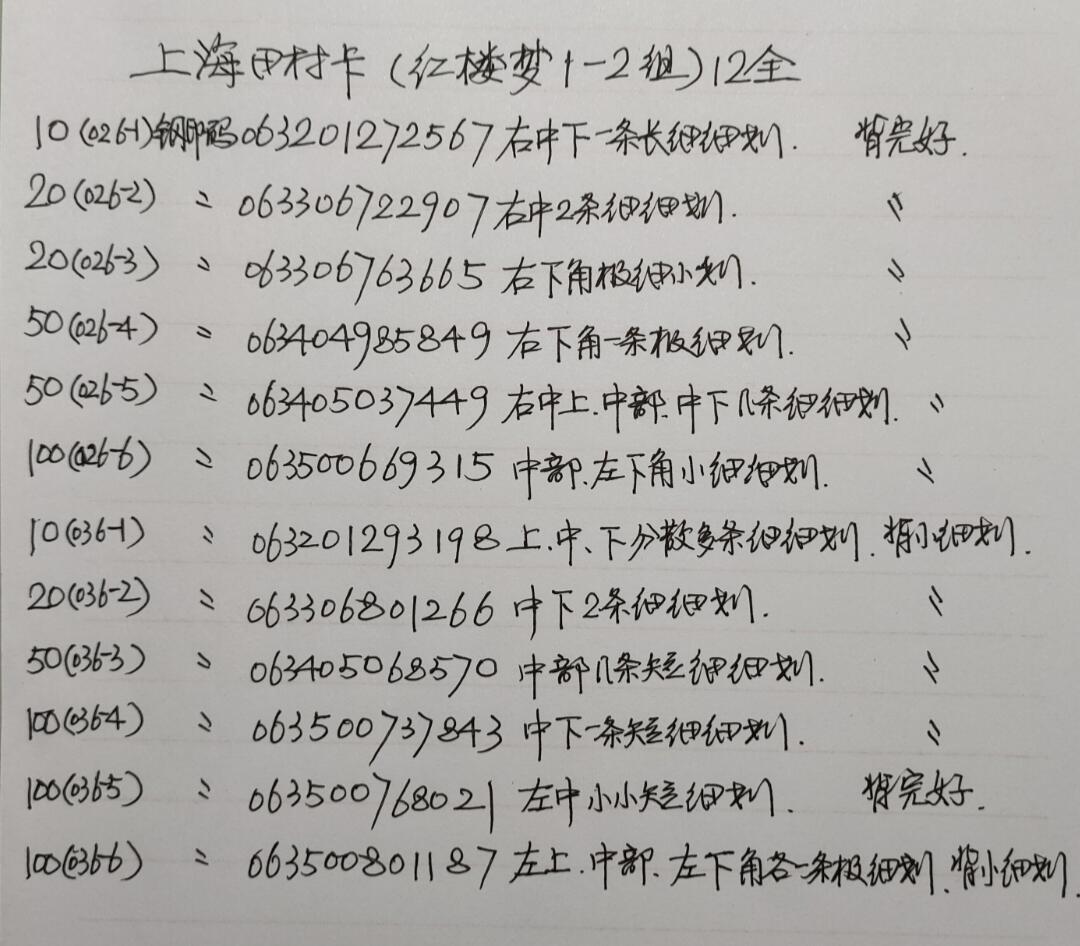 上海田村卡(红楼梦1-2组)12全
10(026-1)钢印码063201272567右中下一条长细细划. 背完好.
20(026-2) 〃 063306722907右中2条细细划. 〃
20(026-3) 〃 063306763665右下角极细小划. 〃
50(026-4) 〃 063404985849右下角一条极细划. 〃
50(026-5) 〃 063405037449右中上.中部.中下几条细细划. 〃
100(026-6) 〃 063500669315中部.左下角小细细划. 〃
10(036-1) 〃 063201293198上.中、下分散多条细细划.背小细划.
20(036-2) 〃 063306801266中下2条细细划. 〃
50(036-3) 〃 063405068570中部几条短细细划. 〃
100(036-4) 〃 063500737843中下一条短细细划. 〃
100(036-5) 〃 063500768021左中小小短细划. 背完好.
100(036-6) 〃 063500801187左上.中部.左下角各一条极细划.背小细划.